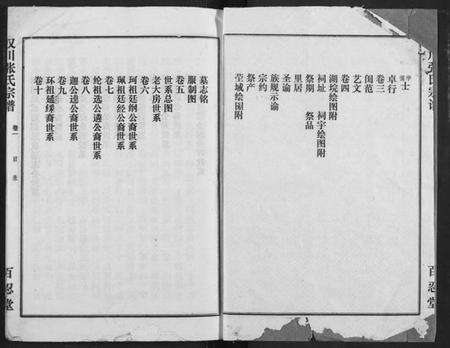 士
卓行
卷三
闺范
艺文
卷四
湖境绘图附
祠址 祠宇绘图附
祭期 祭品
里居
圣谕
族规示谕
宗约
祭产
茔域绘图附
百忍堂
墓志铭
服制图
卷五
世系总图
老大房世系
卷六
珂祖廷纲公裔世系
珮祖廷经公裔世系
卷七
纶祖选公遴公裔世系
卷八
迦公逵公裔世系
卷九
环祖延缪裔世系
卷十
汉川张氏宗谱
卷一
目录
百忍堂